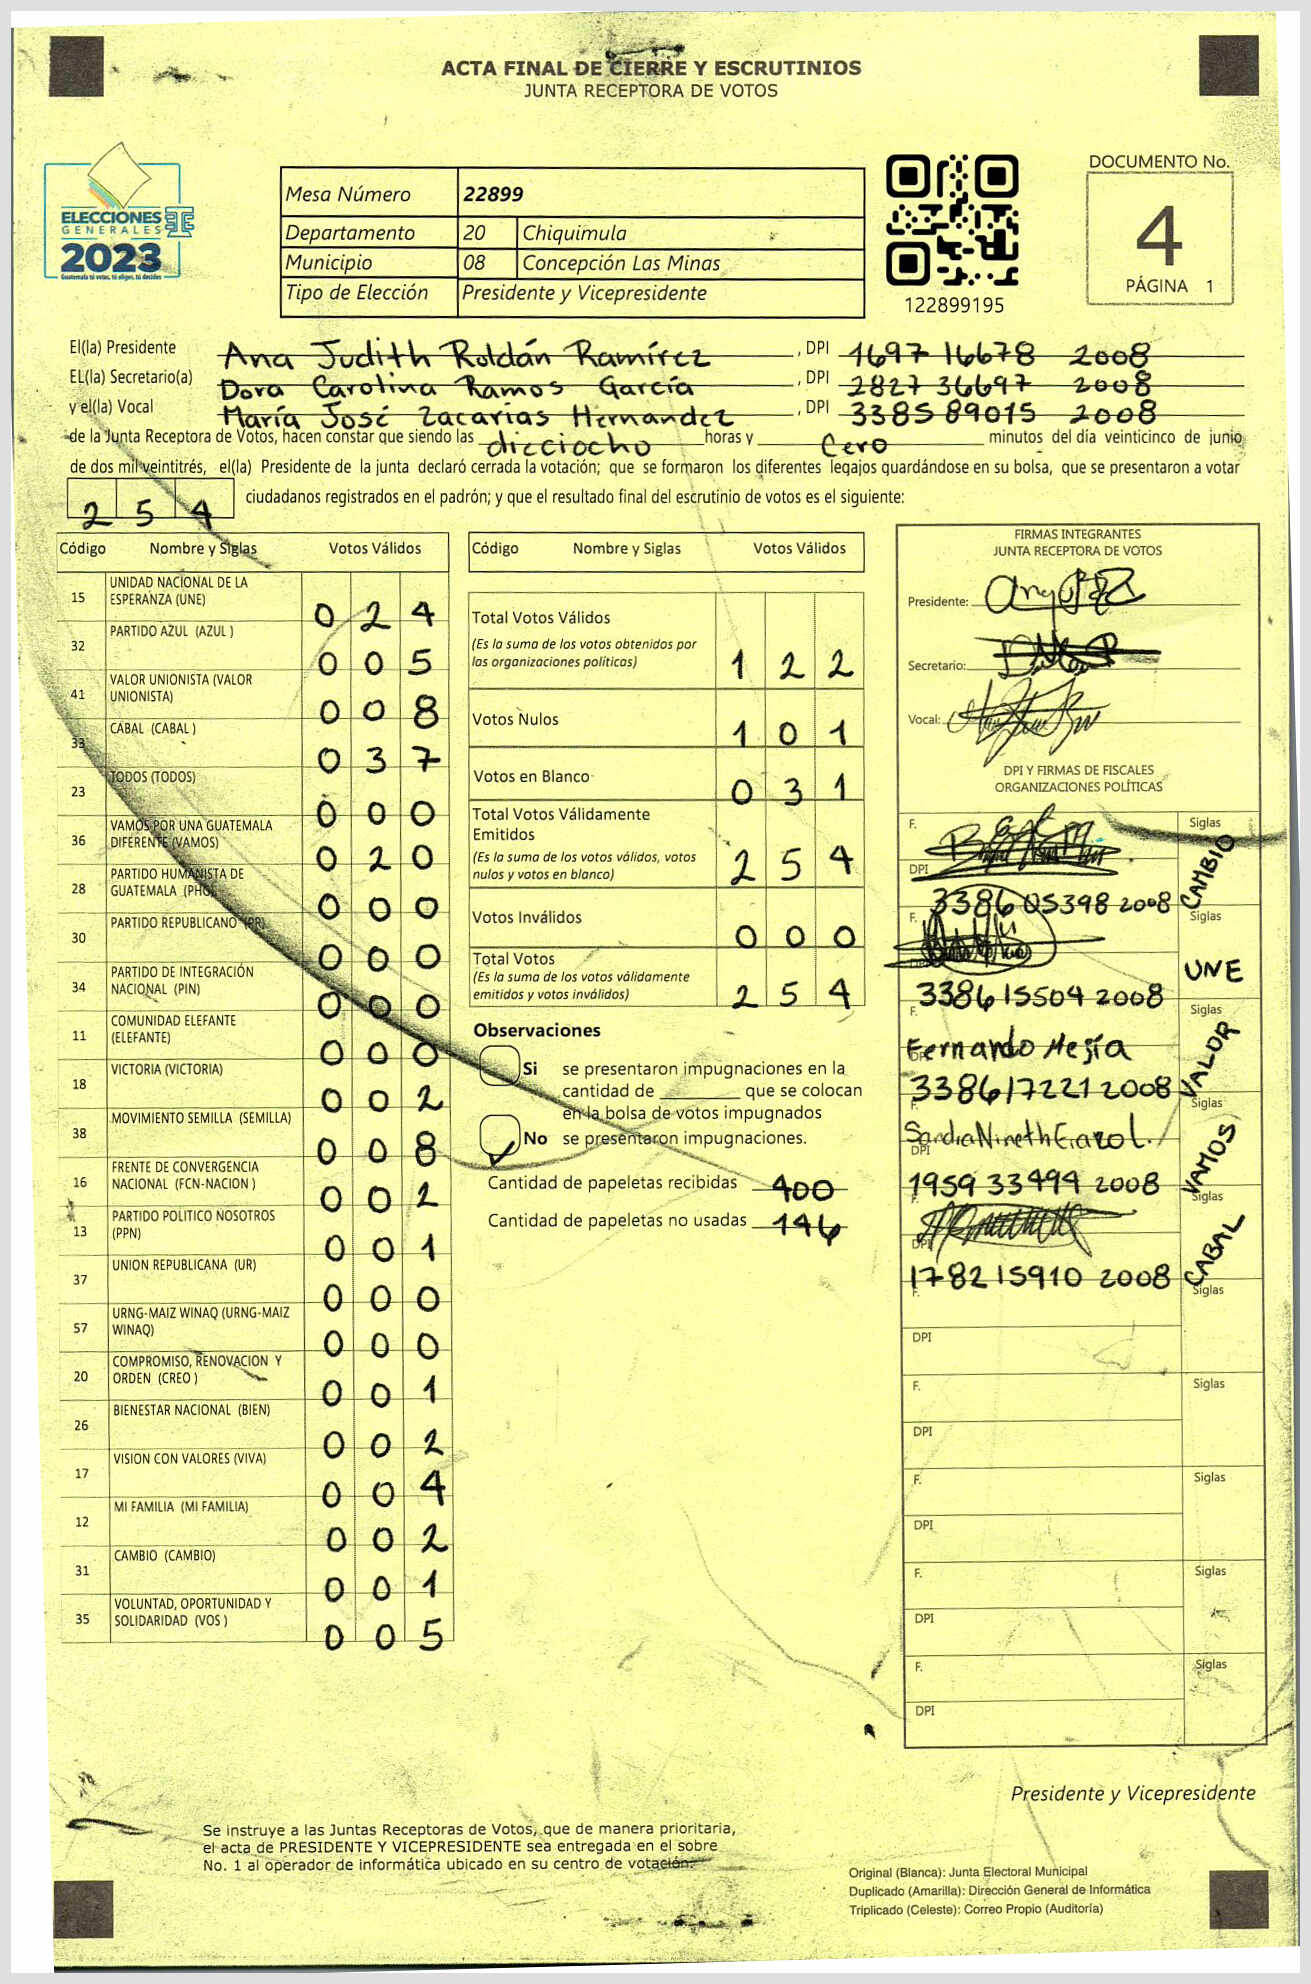 ACTA FINAL DE CIERRE Y ESCRUTINIOS
JUNTA RECEPTORA DE VOTOS
ELECCIONES
GENERALES
2023
Guatemala tú votas, tú eliges, tú decides
Mesa Número 22899
Departamento 20 Chiquimula
Municipio 08 Concepción Las Minas
Tipo de Elección Presidente y Vicepresidente
122899195
DOCUMENTO No.
4
PÁGINA 1
El(la) Presidente Ana Judith Roldán Ramírez , DPI 1697 16678 2008
EL(la) Secretario(a) Dora Carolina Ramos García , DPI 2827 36697 2008
y el(la) Vocal María José Zacarías Hernandez , DPI 3385 89015 2008
de la Junta Receptora de Votos, hacen constar que siendo las dieciocho horas y Cero minutos del día veinticinco de junio
de dos mil veintitrés, el(la) Presidente de la junta declaró cerrada la votación; que se formaron los diferentes legajos guardándose en su bolsa, que se presentaron a votar
2 5 4 ciudadanos registrados en el padrón; y que el resultado final del escrutinio de votos es el siguiente:
Código Nombre y Siglas Votos Válidos
15 UNIDAD NACIONAL DE LA ESPERANZA (UNE) 0 2 4
32 PARTIDO AZUL (AZUL ) 0 0 5
41 VALOR UNIONISTA (VALOR UNIONISTA) 0 0 8
33 CABAL (CABAL ) 0 3 7
23 TODOS (TODOS) 0 0 0
36 VAMOS POR UNA GUATEMALA DIFERENTE (VAMOS) 0 2 0
28 PARTIDO HUMANISTA DE GUATEMALA (PHG) 0 0 0
30 PARTIDO REPUBLICANO (PR) 0 0 0
34 PARTIDO DE INTEGRACIÓN NACIONAL (PIN) 0 0 0
11 COMUNIDAD ELEFANTE (ELEFANTE) 0 0 0
18 VICTORIA (VICTORIA) 0 0 2
38 MOVIMIENTO SEMILLA (SEMILLA) 0 0 8
16 FRENTE DE CONVERGENCIA NACIONAL (FCN-NACION ) 0 0 2
13 PARTIDO POLITICO NOSOTROS (PPN) 0 0 1
37 UNION REPUBLICANA (UR) 0 0 0
57 URNG-MAIZ WINAQ (URNG-MAIZ WINAQ) 0 0 0
20 COMPROMISO, RENOVACION Y ORDEN (CREO ) 0 0 1
26 BIENESTAR NACIONAL (BIEN) 0 0 2
17 VISION CON VALORES (VIVA) 0 0 4
12 MI FAMILIA (MI FAMILIA) 0 0 2
31 CAMBIO (CAMBIO) 0 0 1
35 VOLUNTAD, OPORTUNIDAD Y SOLIDARIDAD (VOS ) 0 0 5
Código Nombre y Siglas Votos Válidos
Total Votos Válidos
(Es la suma de los votos obtenidos por
las organizaciones políticas) 1 2 2
Votos Nulos 1 0 1
Votos en Blanco 0 3 1
Total Votos Válidamente
Emitidos
(Es la suma de los votos válidos, votos
nulos y votos en blanco) 2 5 4
Votos Inválidos 0 0 0
Total Votos
(Es la suma de los votos válidamente
emitidos y votos inválidos) 2 5 4
Observaciones
Si se presentaron impugnaciones en la
cantidad de ________ que se colocan
en la bolsa de votos impugnados
No se presentaron impugnaciones.
Cantidad de papeletas recibidas 400
Cantidad de papeletas no usadas 146
FIRMAS INTEGRANTES
JUNTA RECEPTORA DE VOTOS
Presidente:
Secretario:
Vocal:
DPI Y FIRMAS DE FISCALES
ORGANIZACIONES POLÍTICAS
F. Siglas
DPI
3386 05398 2008 CAMBIO
F. Siglas
DPI
3386 15504 2008 UNE
F. Siglas
Fernando Mejía
DPI
3386 17221 2008 VALOR
F. Siglas
DPI
1959 33494 2008 VAMOS
F. Siglas
DPI
1782 15910 2008 CABAL
F. Siglas
DPI
F. Siglas
DPI
F. Siglas
DPI
F. Siglas
DPI
F. Siglas
DPI
Presidente y Vicepresidente
Se instruye a las Juntas Receptoras de Votos, que de manera prioritaria,
el acta de PRESIDENTE Y VICEPRESIDENTE sea entregada en el sobre
No. 1 al operador de informática ubicado en su centro de votación.
Original (Blanca): Junta Electoral Municipal
Duplicado (Amarilla): Dirección General de Informática
Triplicado (Celeste): Correo Propio (Auditoría)